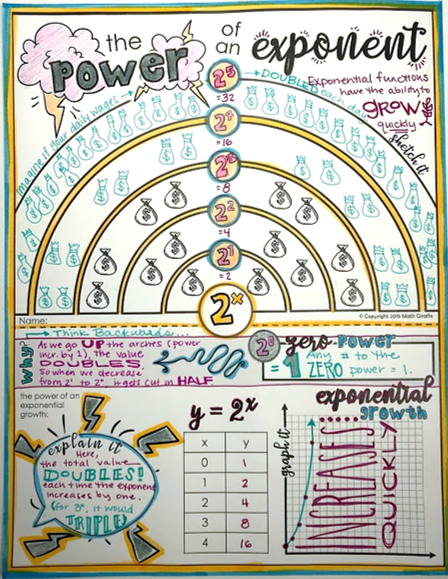 the power of an exponent
Imagine if your daily wages → DOUBLED each day...
sketch it
Exponential functions
have the ability to
GROW
quickly
2⁵
=32
2⁴
=16
2³
=8
2²
=4
2¹
=2
2ˣ
Name:
© Copyright 2015 Math Giraffe
Think Backwards...
Why?
As we go UP the arches (power
incr. by 1), the value
DOUBLES
So when we decrease
from 2¹ to 2⁰, it gets cut in HALF
2⁰
= 1
zero power
Any # to the
ZERO power = 1.
the power of an
exponential
growth:
explain it
Here,
the total value
DOUBLES!
each time the exponent
increases by one.
(for 3ˣ, it would
TRIPLE)
y = 2ˣ
x y
0 1
1 2
2 4
3 8
4 16
exponential
growth
graph it
INCREASES
QUICKLY